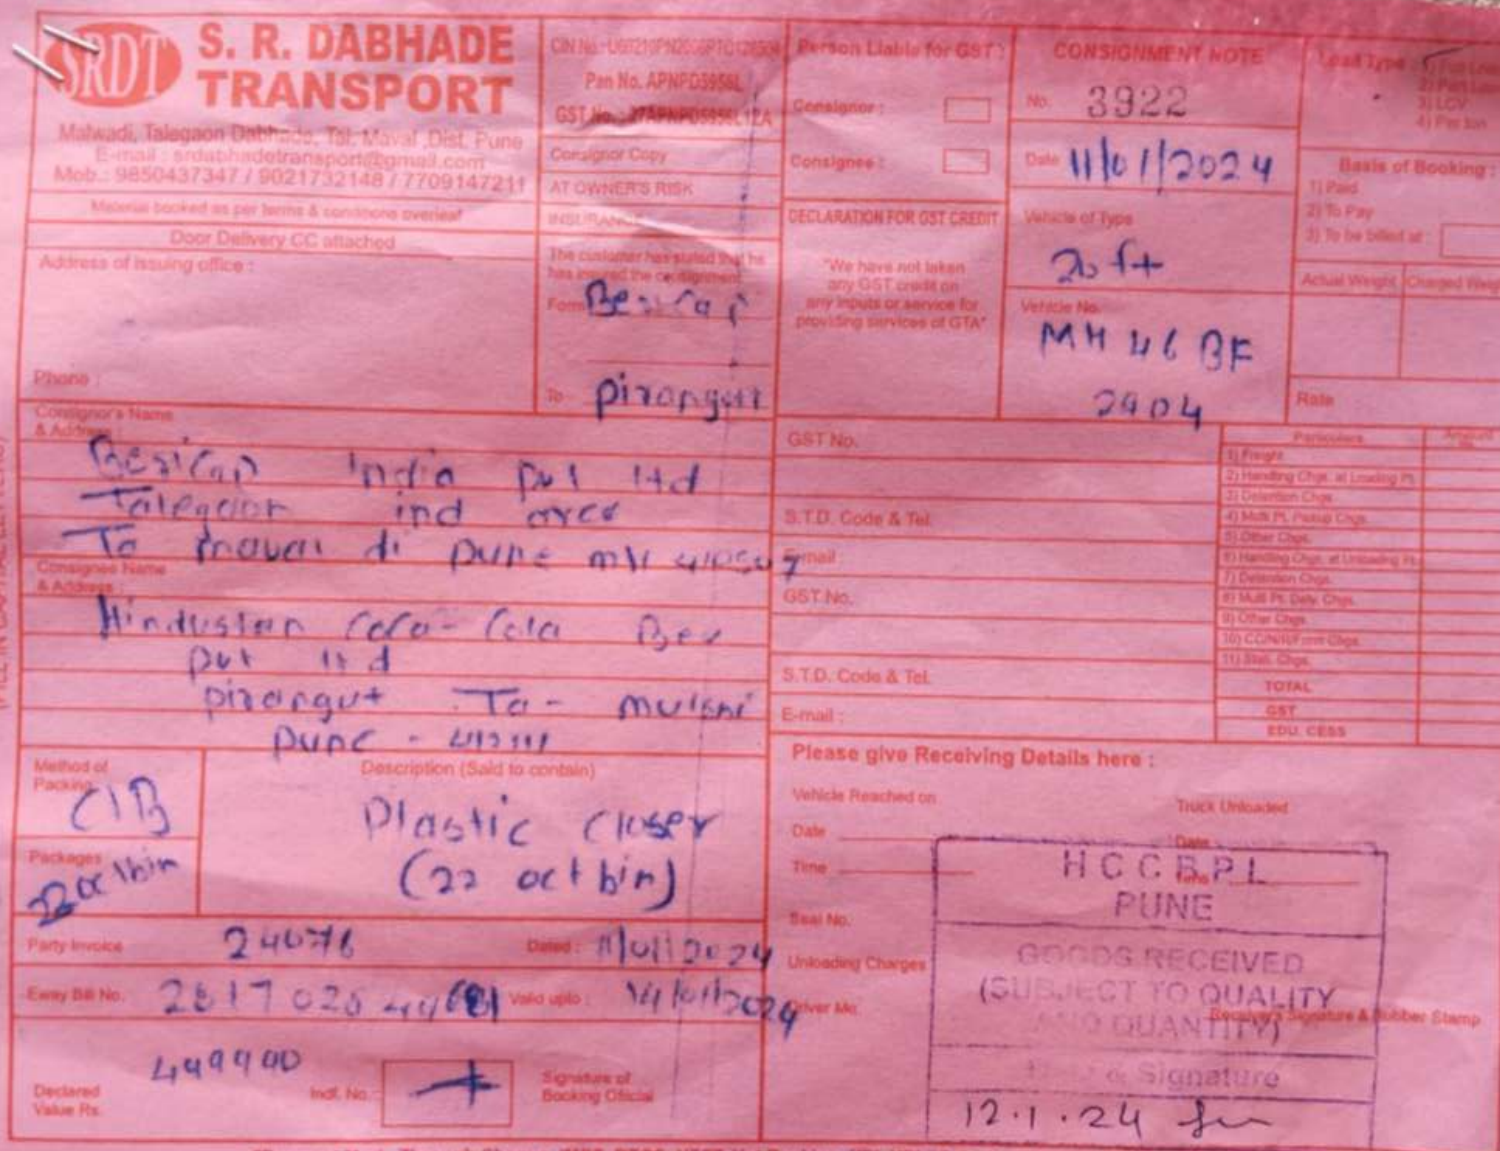 SRDT
S. R. DABHADE
TRANSPORT
Malwadi, Talegaon Dabhade, Tal. Maval, Dist. Pune
E-mail : srdabhadetransport@gmail.com
Mob.: 9850437347 / 9021732148 / 7709147211
Material booked as per terms & conditions overleaf
Door Delivery CC attached
Address of issuing office :
Phone :
CIN No.:
Pan No. APNPD5956L
GST No.
Consignor Copy
AT OWNER'S RISK
INSURANCE
The customer has stated that he
has insured the consignment
From Bericap
To pirangut
Person Liable for GST :
Consignor :
Consignee :
DECLARATION FOR GST CREDIT
"We have not taken
any GST credit on
any inputs or service for
providing services of GTA"
CONSIGNMENT NOTE
No. 3922
Date 11/01/2024
Vehicle of Type
20 ft
Vehicle No.
MH 46 BF
2904
Load Type
3) LCV
Basis of Booking :
1) Paid
2) To Pay
3) To be billed at :
Actual Weight
Charged
Rate
Consignor's Name
& Address :
Bericap India pvt ltd
Talegaon ind area
Ta maval di pune mh 410507
Consignee Name
& Address :
Hindustan Coca-Cola Bev
pvt ltd
pirangut Ta- mulshi
pune - 412111
GST No.
S.T.D. Code & Tel.
E-mail :
GST No.
S.T.D. Code & Tel.
E-mail :
Particulars
Amount
1) Freight
2) Handling Chgs. at Loading Pt.
3) Detention Chgs.
4) Multi Pt. Pickup Chgs.
5) Other Chgs.
6) Handling Chgs. at Unloading Pt.
7) Detention Chgs.
8) Multi Pt. Delv. Chgs.
9) Other Chgs.
11) Stat. Chgs.
TOTAL
GST
EDU. CESS
Method of
Packing
CIB
Packages
22 oct bin
Description (Said to contain)
Plastic closer
(22 oct bin)
Party Invoice 24076 Dated : 11/01/2024
Eway Bill No. Valid upto : 14/01/2024
Declared
Value Rs.
499990
Indf. No.:
Signature of
Booking Official
Please give Receiving Details here :
Vehicle Reached on
Truck Unloaded
Date
Date
Time
Time
Seal No.
Unloading Charges
Driver Mo.
Receiver's Signature & Rubber Stamp
HCCBPL
PUNE
GOODS RECEIVED
(SUBJECT TO QUALITY
AND QUANTITY)
& Signature
12.1.24